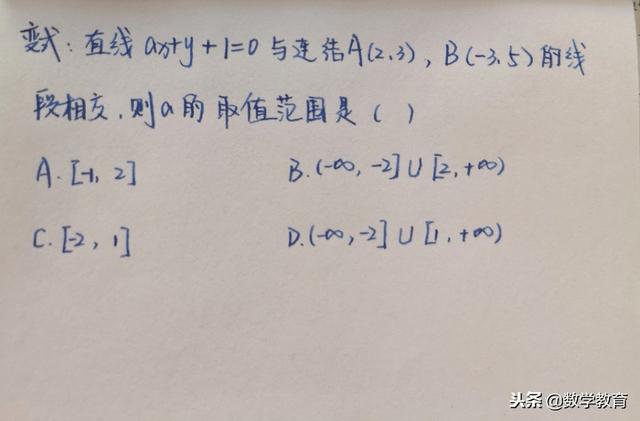 变式：直线 ax+y+1=0 与连结A(2,3)，B(-3,5)的线
段相交，则a的取值范围是（ ）
A. [-1, 2] B. (-∞, -2]∪[2, +∞)
C. [-2, 1] D. (-∞, -2]∪[1, +∞)
头条 @数学教育